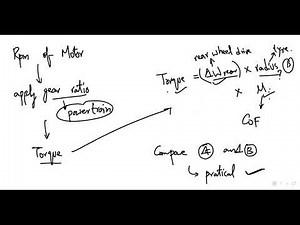 Rpm of Motor
apply gear ratio
powertrain
Torque
rear wheel drive
tyre.
Torque = (ΔW rear) × radius B
× μ
COF
Compare A and B
↳ pratical ✓